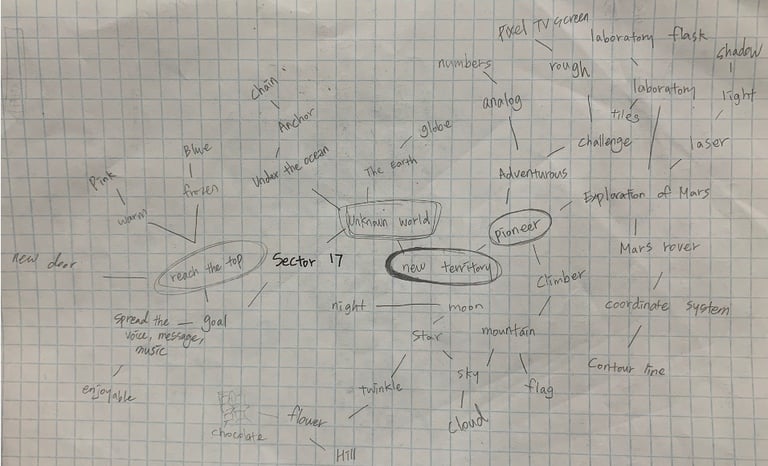 Pixel TV screen
laboratory flask
shadow
numbers
rough
Chain
laboratory
light
analog
tiles
Anchor
globe
challenge
laser
Blue
Under the ocean
The Earth
Adventurous
Pink
frozen
Exploration of Mars
warm
Unknown world
pioneer
Mars rover
New door
reach the top
Sector 17
new territory
Climber
night
moon
coordinate system
spread the
voice, message,
music
goal
Star
mountain
Contour line
enjoyable
twinkle
sky
flag
flower
cloud
chocolate
Hill